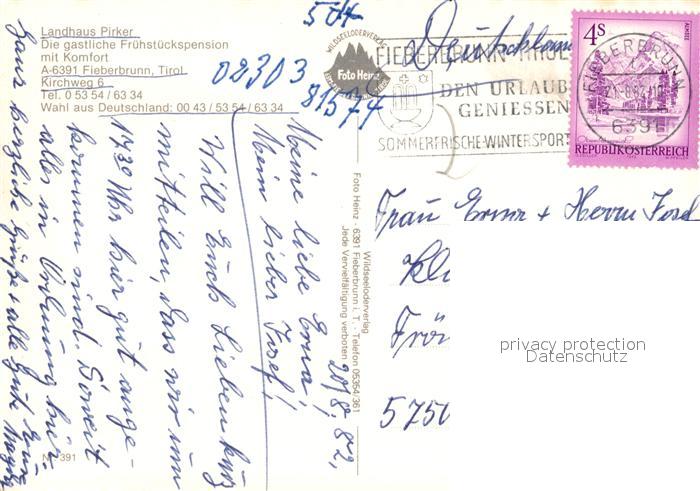 Landhaus Pirker
Die gastliche Frühstückspension
mit Komfort
A-6391 Fieberbrunn, Tirol
Kirchweg 6
Tel. 0 53 54 / 63 34
Wahl aus Deutschland: 00 43 / 53 54 / 63 34
02303
81574
WILDSEELODERVERLAG
Foto Heinz
Deutschland
FIEBERBRUNN TIROL
DEN URLAUB
GENIESSEN
SOMMERFRISCHE-WINTERSPORT
4S
ALMSEE
REPUBLIK ÖSTERREICH
FIEBERBRUNN
6391
20/8. 82,
Meine liebe Erna,
Mein lieber Josef!
Will Euch Lieben kurz
mitteilen, dass wir um
17.30 Uhr hier gut ange-
kommen sind. Soweit
alles in Ordnung hier.
Ganz herzliche Grüße + alle Gute Eure
Wildseeloderverlag
Foto Heinz - 6391 Fieberbrunn i. T. - Telefon 05354/361
Jede Vervielfältigung verboten
Frau Erna + Herrn Josef
Kli
Frön
5750
privacy protection
Datenschutz
391